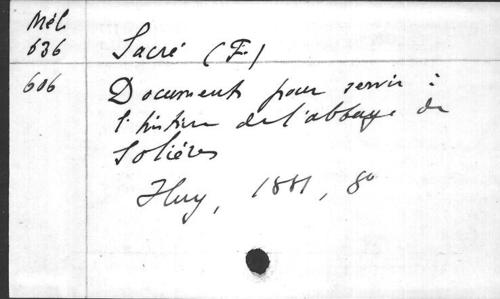 Mél
636
606
Sacré (F)
Documents pour servir à
l'histoire de l'abbaye de
Solières
Huy, 1881, 8°